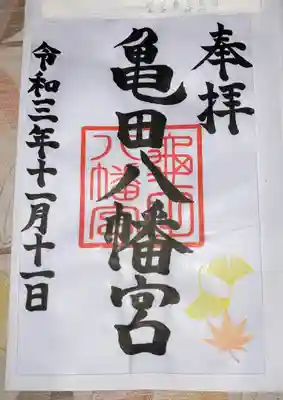 奉拝
亀田八幡宮
令和三年十一月十一日